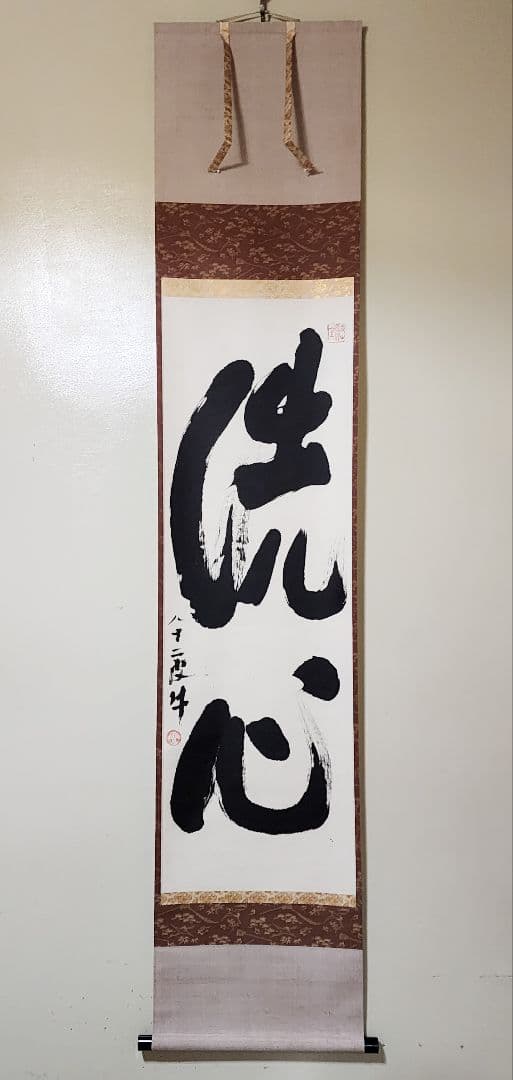 洗心
八十二 牛